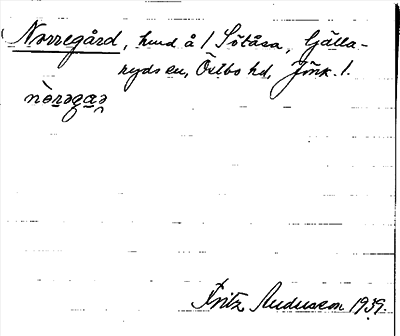 Norregård, hmd å 1 Sötåsa, Gälla-
ryds sn, Östbo hd, Jönk. l.
nòrəgaə
Fritz Andersson 1939.